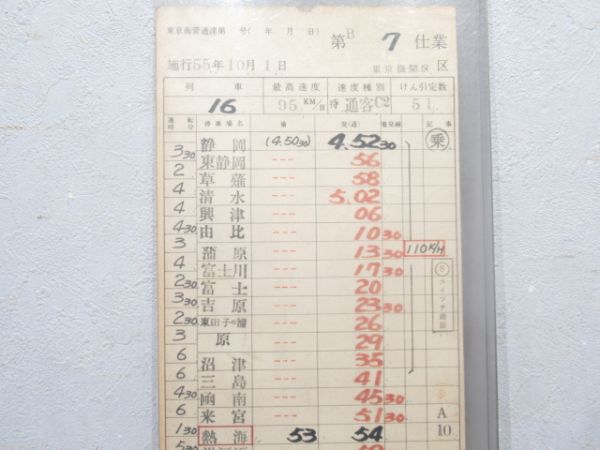 東京南管通達第 号( 年 月 日) 第B 7 仕業
施行55年10月1日 東京機関区 区
列 車 最高速度 速度種別 けん引定数
16 95 KM/H 特 通客C2 51
運転時分 停車場名 着 発(通) 着発線 記事
静岡 (4.50 30) 4.52 30 乗
3 30 東静岡 --- 56
2 草薙 --- 58
4 清水 --- 5.02
4 興津 --- 06
4 由比 --- 10 30
3 蒲原 --- 13 30 110K/H
4 富士川 --- 17 30
2 30 富士 --- 20
3 30 吉原 --- 23 30
2 30 東田子の浦 --- 26
3 原 --- 29
6 沼津 --- 35
6 三島 --- 41
4 30 函南 --- 45 30
6 来宮 --- 51 30 A
1 30 熱海 53 54 10
5 30